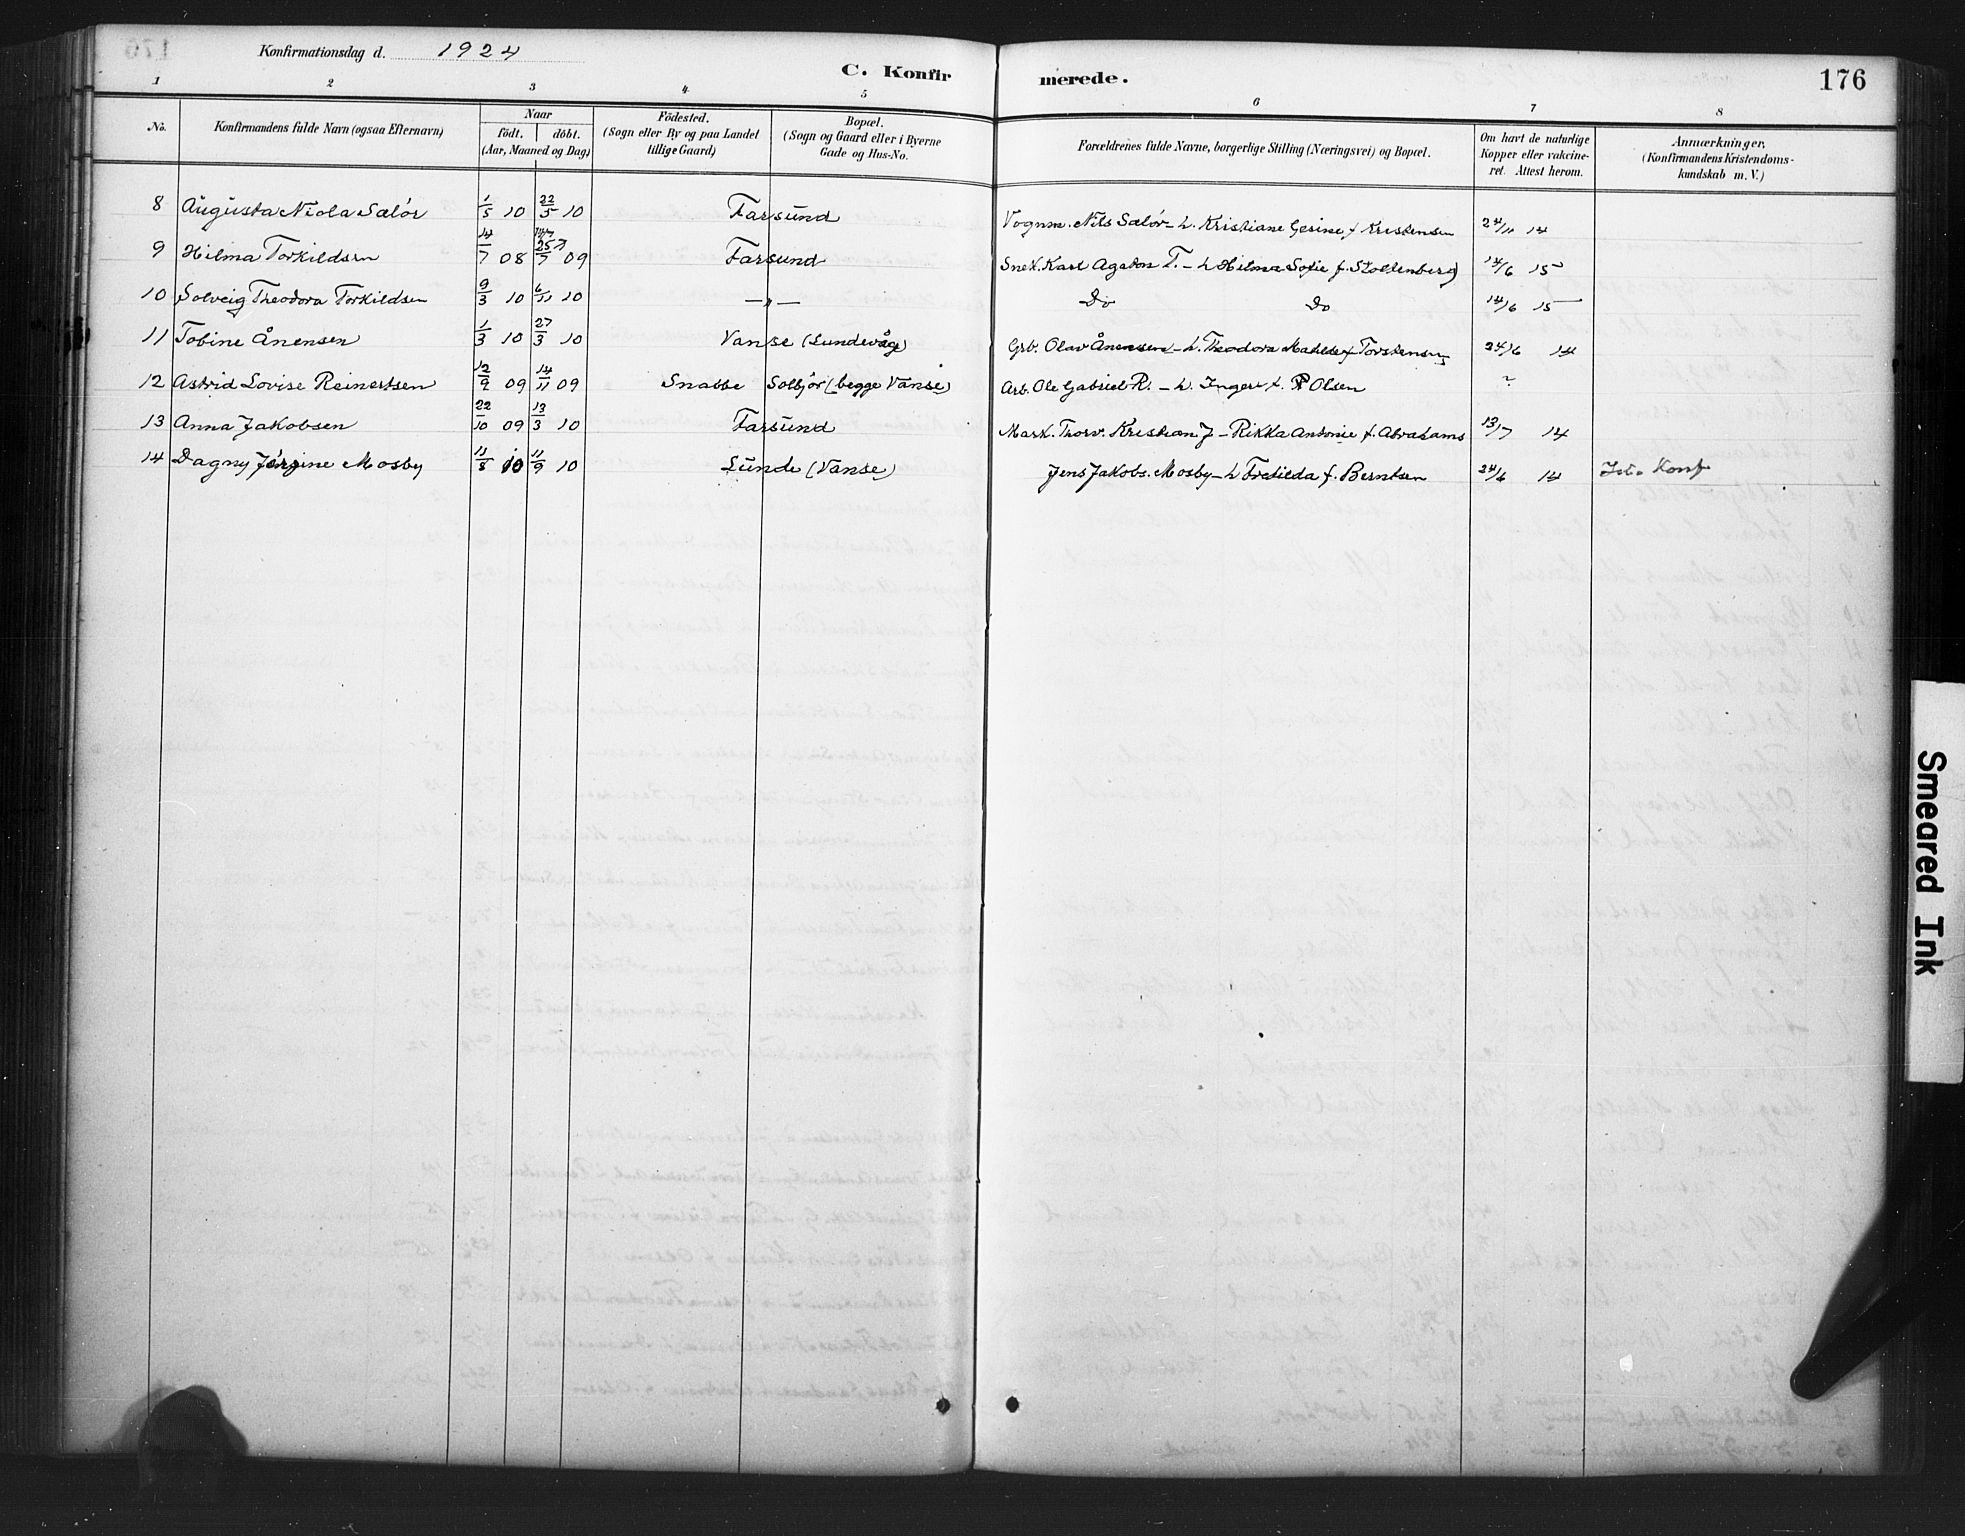 176
Konfirmationsdag d. 1924
C. Konfirmerede.
1 2 3 4 5 6 7 8
No.
Konfirmandens fulde Navn (ogsaa Efternavn)
Naar
födt. döbt.
(Aar, Maaned og Dag)
Födested.
(Sogn eller By og paa Landet
tillige Gaard)
Bopæl.
(Sogn og Gaard eller i Byerne
Gade og Hus-No.
Forældrenes fulde Navne, borgerlige Stilling (Næringsvei) og Bopæl.
Om havt de naturlige
Kopper eller vakcine-
ret. Attest herom.
Anmærkninger,
(Konfirmandens Kristendoms-
kundskab m. V.)
8 Augusta Niola Sælör 1/5 10 22/5 10 Farsund Vognm. Nils Sælör - h. Kristiane Gesine f Kristensen 24/11 14
9 Hilma Torkildsen 14/7 08 25/7 09 Farsund Snek. Karl Agaton T. - h Hilma Sofie f. Stoltenberg) 14/6 15
10 Solveig Theodora Torkildsen 9/3 10 6/11 10 —〃— Do Do 14/6 15
11 Tobine Ånensen 1/3 10 27/3 10 Vanse (Lundevåge) Grb. Olav Ånensen - h. Theodora f Torstensen 24/6 14
12 Astrid Lovise Reinertsen 12/9 09 14/11 09 Snabbe Solbjör (begge Vanse) Arb. Ole Gabriel R. - h. Inger f. Olsen ~
13 Anna Jakobsen 22/10 09 13/3 10 Farsund Mask. Thorv. Kristian J - Rikka Antonie f. Abrahams 13/7 14
14 Dagny Mosby 11/8 10 11/9 10 Lunde (Vanse) Jens Jakobs. Mosby - h f. Berntsen 24/6 14 Konf
Smeared Ink